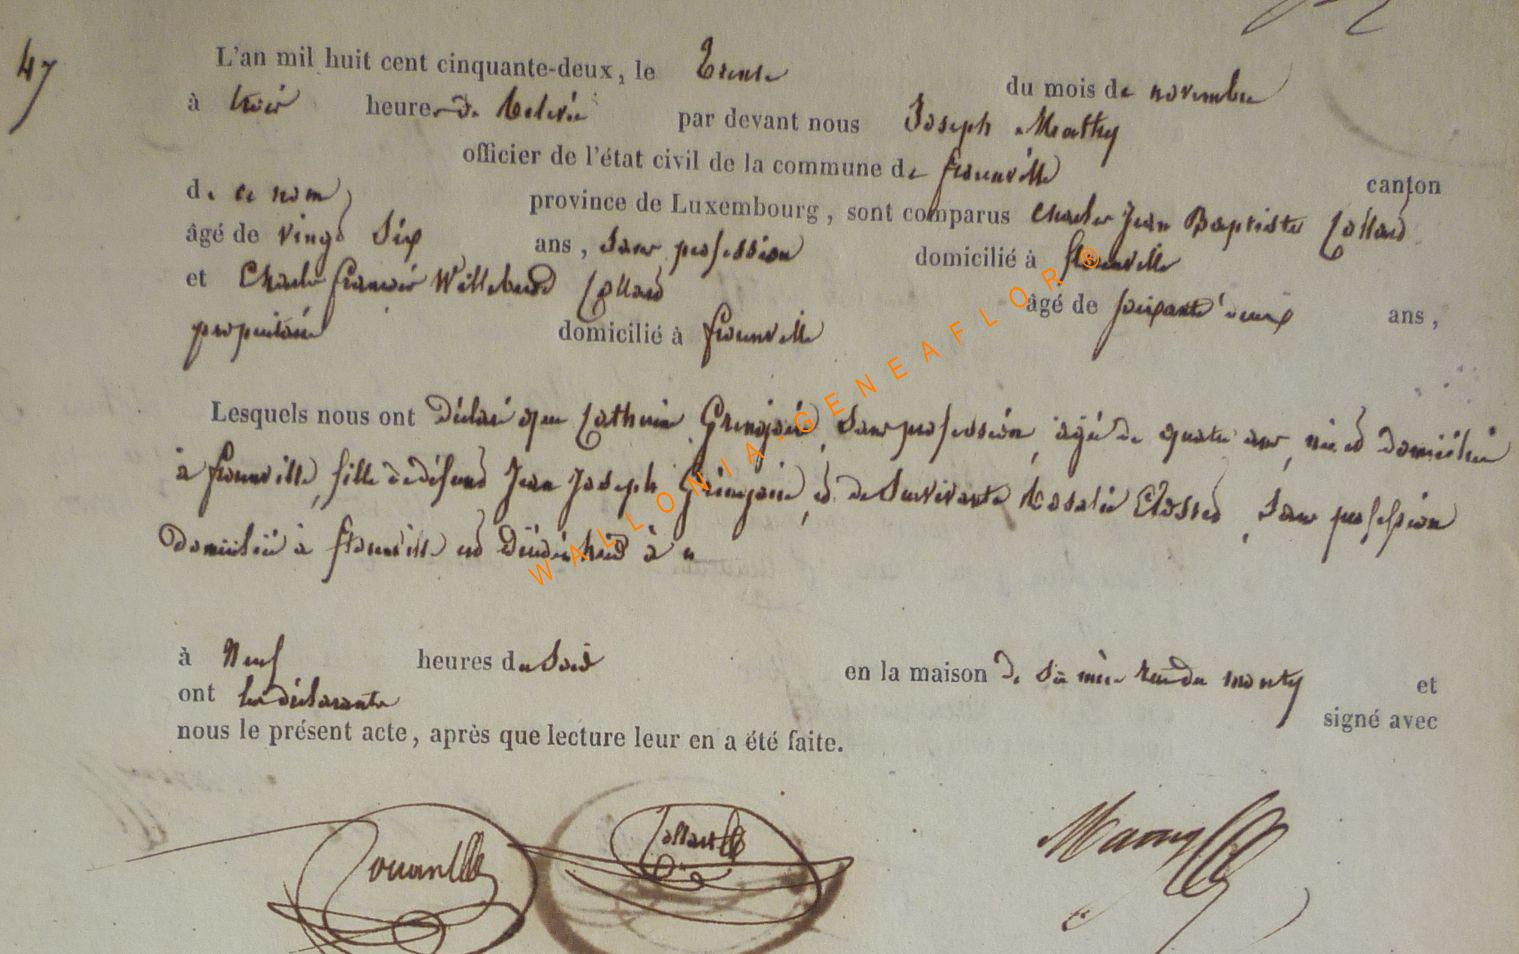 47
L'an mil huit cent cinquante-deux, le Trente du mois de novembre
à trois heures de relevée par devant nous Joseph Mathy
officier de l'état civil de la commune de florenville canton
de ce nom, province de Luxembourg, sont comparus Charles Jean Baptiste Collard
âgé de vingt Six ans, Sans profession domicilié à florenville
et Charles françois Willebrod Collard âgé de soixante deux ans,
propriétaire domicilié à florenville
Lesquels nous ont déclaré que Catherine sans profession, âgée de quatre ans, née et domiciliée
à florenville, fille de défunt Jean Joseph et de Survivante Rosalie sans profession
domiciliée à florenville est décédée à
à Neuf heures du Soir en la maison de sa mère rue du et
ont les déclarants signé avec
nous le présent acte, après que lecture leur en a été faite.
Collard
WALLONIA-GENEAFLOR®